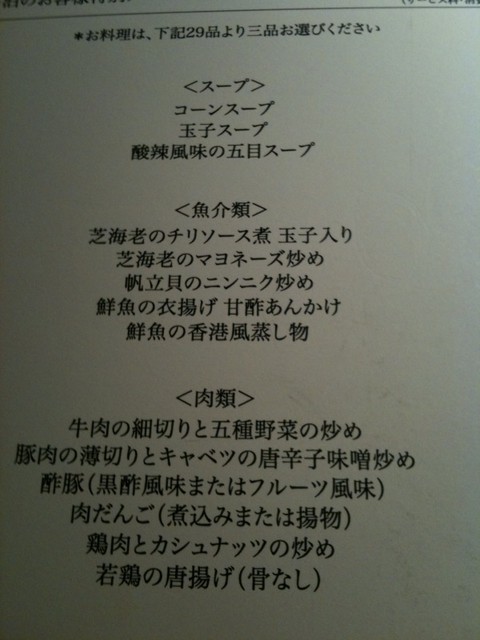 *お料理は、下記29品より三品お選びください
<スープ>
コーンスープ
玉子スープ
酸辣風味の五目スープ
<魚介類>
芝海老のチリソース煮 玉子入り
芝海老のマヨネーズ炒め
帆立貝のニンニク炒め
鮮魚の衣揚げ 甘酢あんかけ
鮮魚の香港風蒸し物
<肉類>
牛肉の細切りと五種野菜の炒め
豚肉の薄切りとキャベツの唐辛子味噌炒め
酢豚(黒酢風味またはフルーツ風味)
肉だんご(煮込みまたは揚物)
鶏肉とカシュナッツの炒め
若鶏の唐揚げ(骨なし)